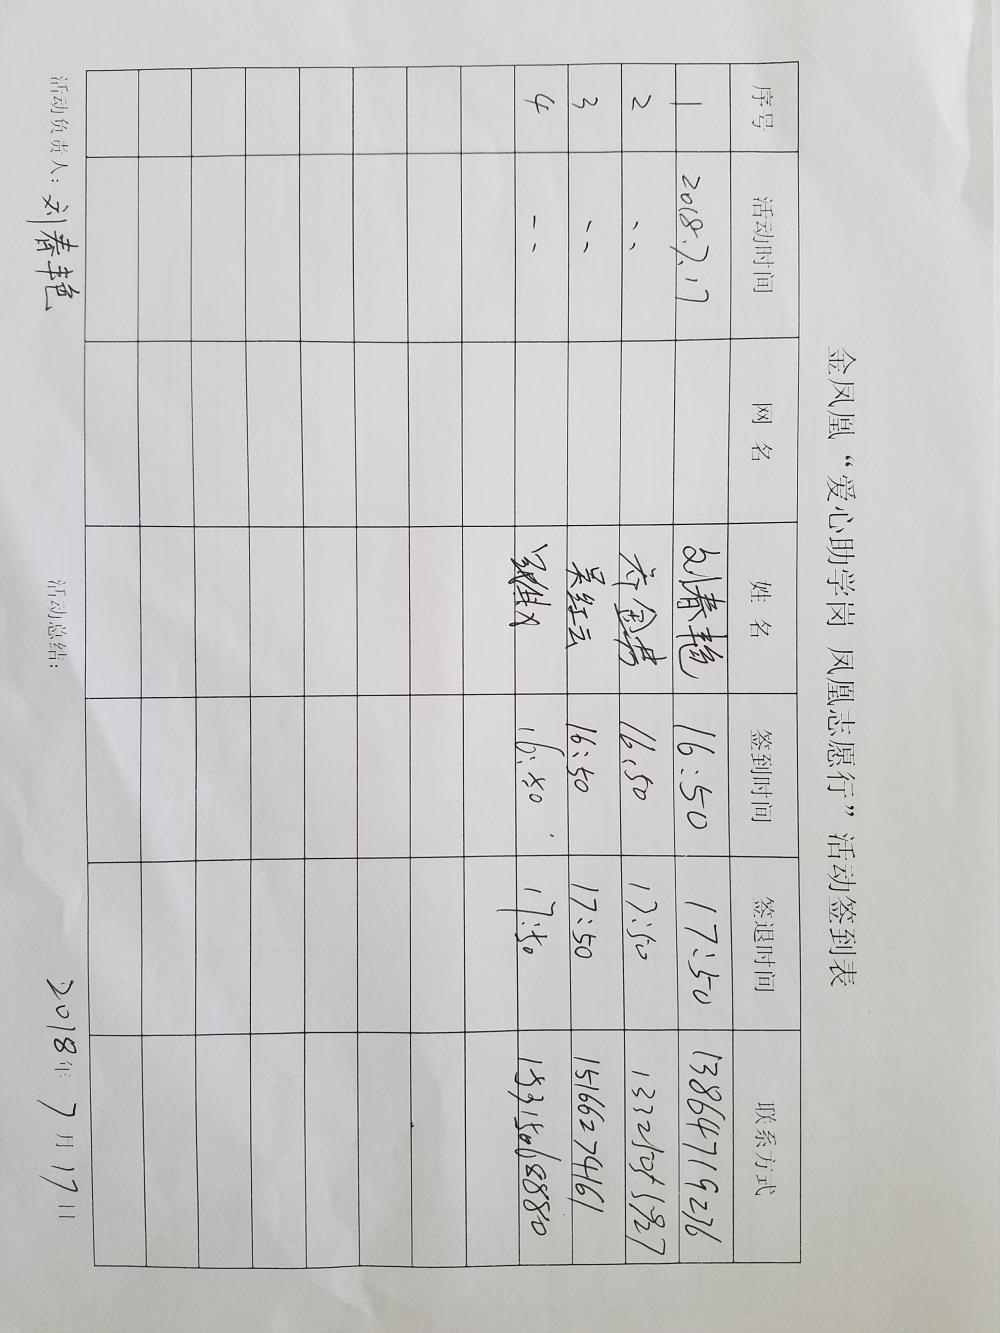 金凤凰“爱心助学岗 凤凰志愿行”活动签到表
序号 活动时间 网 名 姓 名 签到时间 签退时间 联系方式
1 2018.7.17 刘春艳 16:50 17:50 13864719236
2 〃 16:50 17:50
3 〃 吴红云 16:50 17:50 1516627461
4 〃 16:50 17:50
活动负责人: 刘春艳 活动总结: 2018年 7月17日